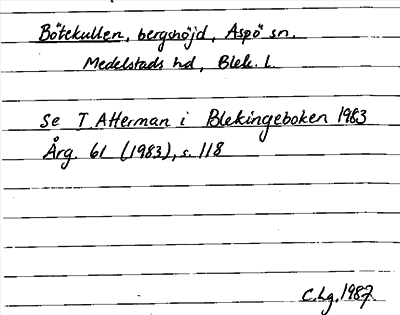 Bötekullen, bergshöjd, Aspö sn.
Medelstads hd, Blek. l.
Se T. Atterman i Blekingeboken 1983
Årg. 61 (1983), s. 118
C.Lg. 1987.